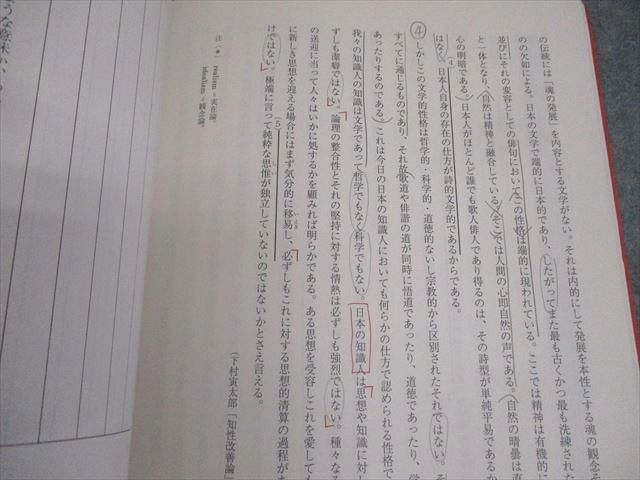 の伝統には「魂の発展」を内容とする文学がない。それは内的にして発展を本性とする魂の観念そ
の欠如による。日本の文学で端的に日本的であり、したがってまた最も古くかつ最も洗練された
並びにそれの変容としての俳句においてこの性格は端的に現われている。ここでは精神は有機的に
と一体となり、自然は精神と融合している。そこでは人間の心即自然の声である。自然の晴曇は直
心の明暗である。日本人がほとんど誰でも歌人俳人であり得るのは、その詩型が単純平易であるか
はなく、日本人自身の存在の仕方が詩的文学的であるからである。
(4)
④ しかしこの文学的性格は哲学的・科学的・道徳的ないし宗教的から区別されたそれではない。
すべてに通じるものであり、それ故歌道や俳諧の道が同時に悟道であったり、道徳であったり、学
あったりするのである。これは今日の日本の知識人においても何らかの仕方で認められる性格で
我々の知識人の知識は文学であって哲学でもなく科学でもない。日本の知識人は思想や知識に対し
ずしも潔癖ではない。論理の整合性とそれの堅持に対する情熱は必ずしも強烈ではない。種々な
の送迎に当って人々はいかに処するかを顧みれば明らかである。ある思想を受容しこれを愛しても
に新しき思想を迎える場合にはまず気分的に移易し、必ずしもこれに対する思想的清算の過程が
けではない。極端に言って純粋な思惟が独立していないのではないかとさえ言える。
(5)
(下村寅太郎「知性改善論」
注(*) realism=実在論。
idealism=観念論。